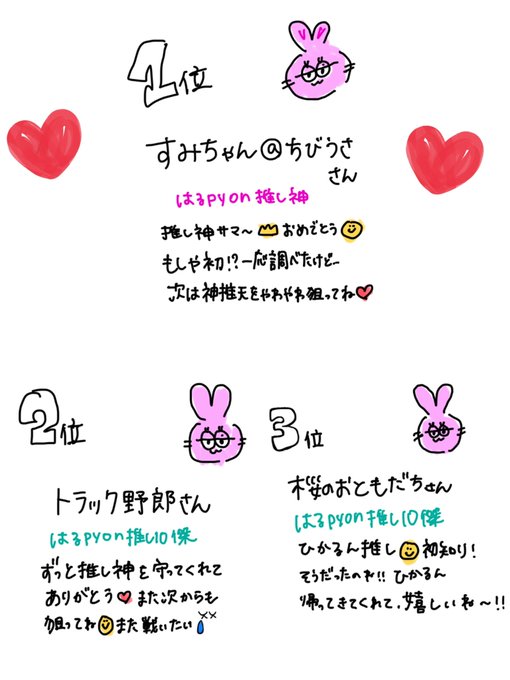 1位
すみちゃん@ちびうさ
さん
はるpyon推し神
推し神サマ〜👑おめでとう😊
もしや初!?一応調べたけど…
次は神推天をやわやわ狙ってね❤️
2位
トラック野郎さん
はるpyon推し10傑
ずっと推し神を守ってくれて
ありがとう❤️また次からも
狙ってね😊また戦いたい💧
3位
桜のおともだちさん
はるpyon推し10傑
ひかるん推し😊初知り!
そうだったのね!!ひかるん
帰ってきてくれて、嬉しいね〜!!